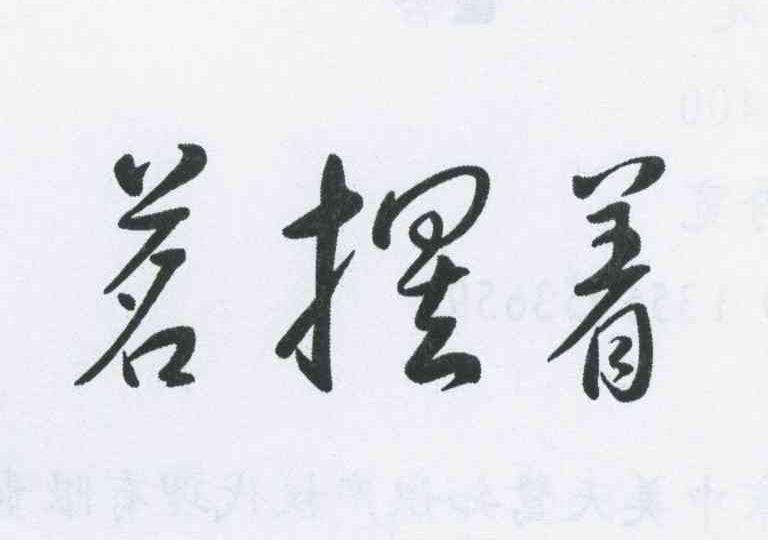 茗摆着